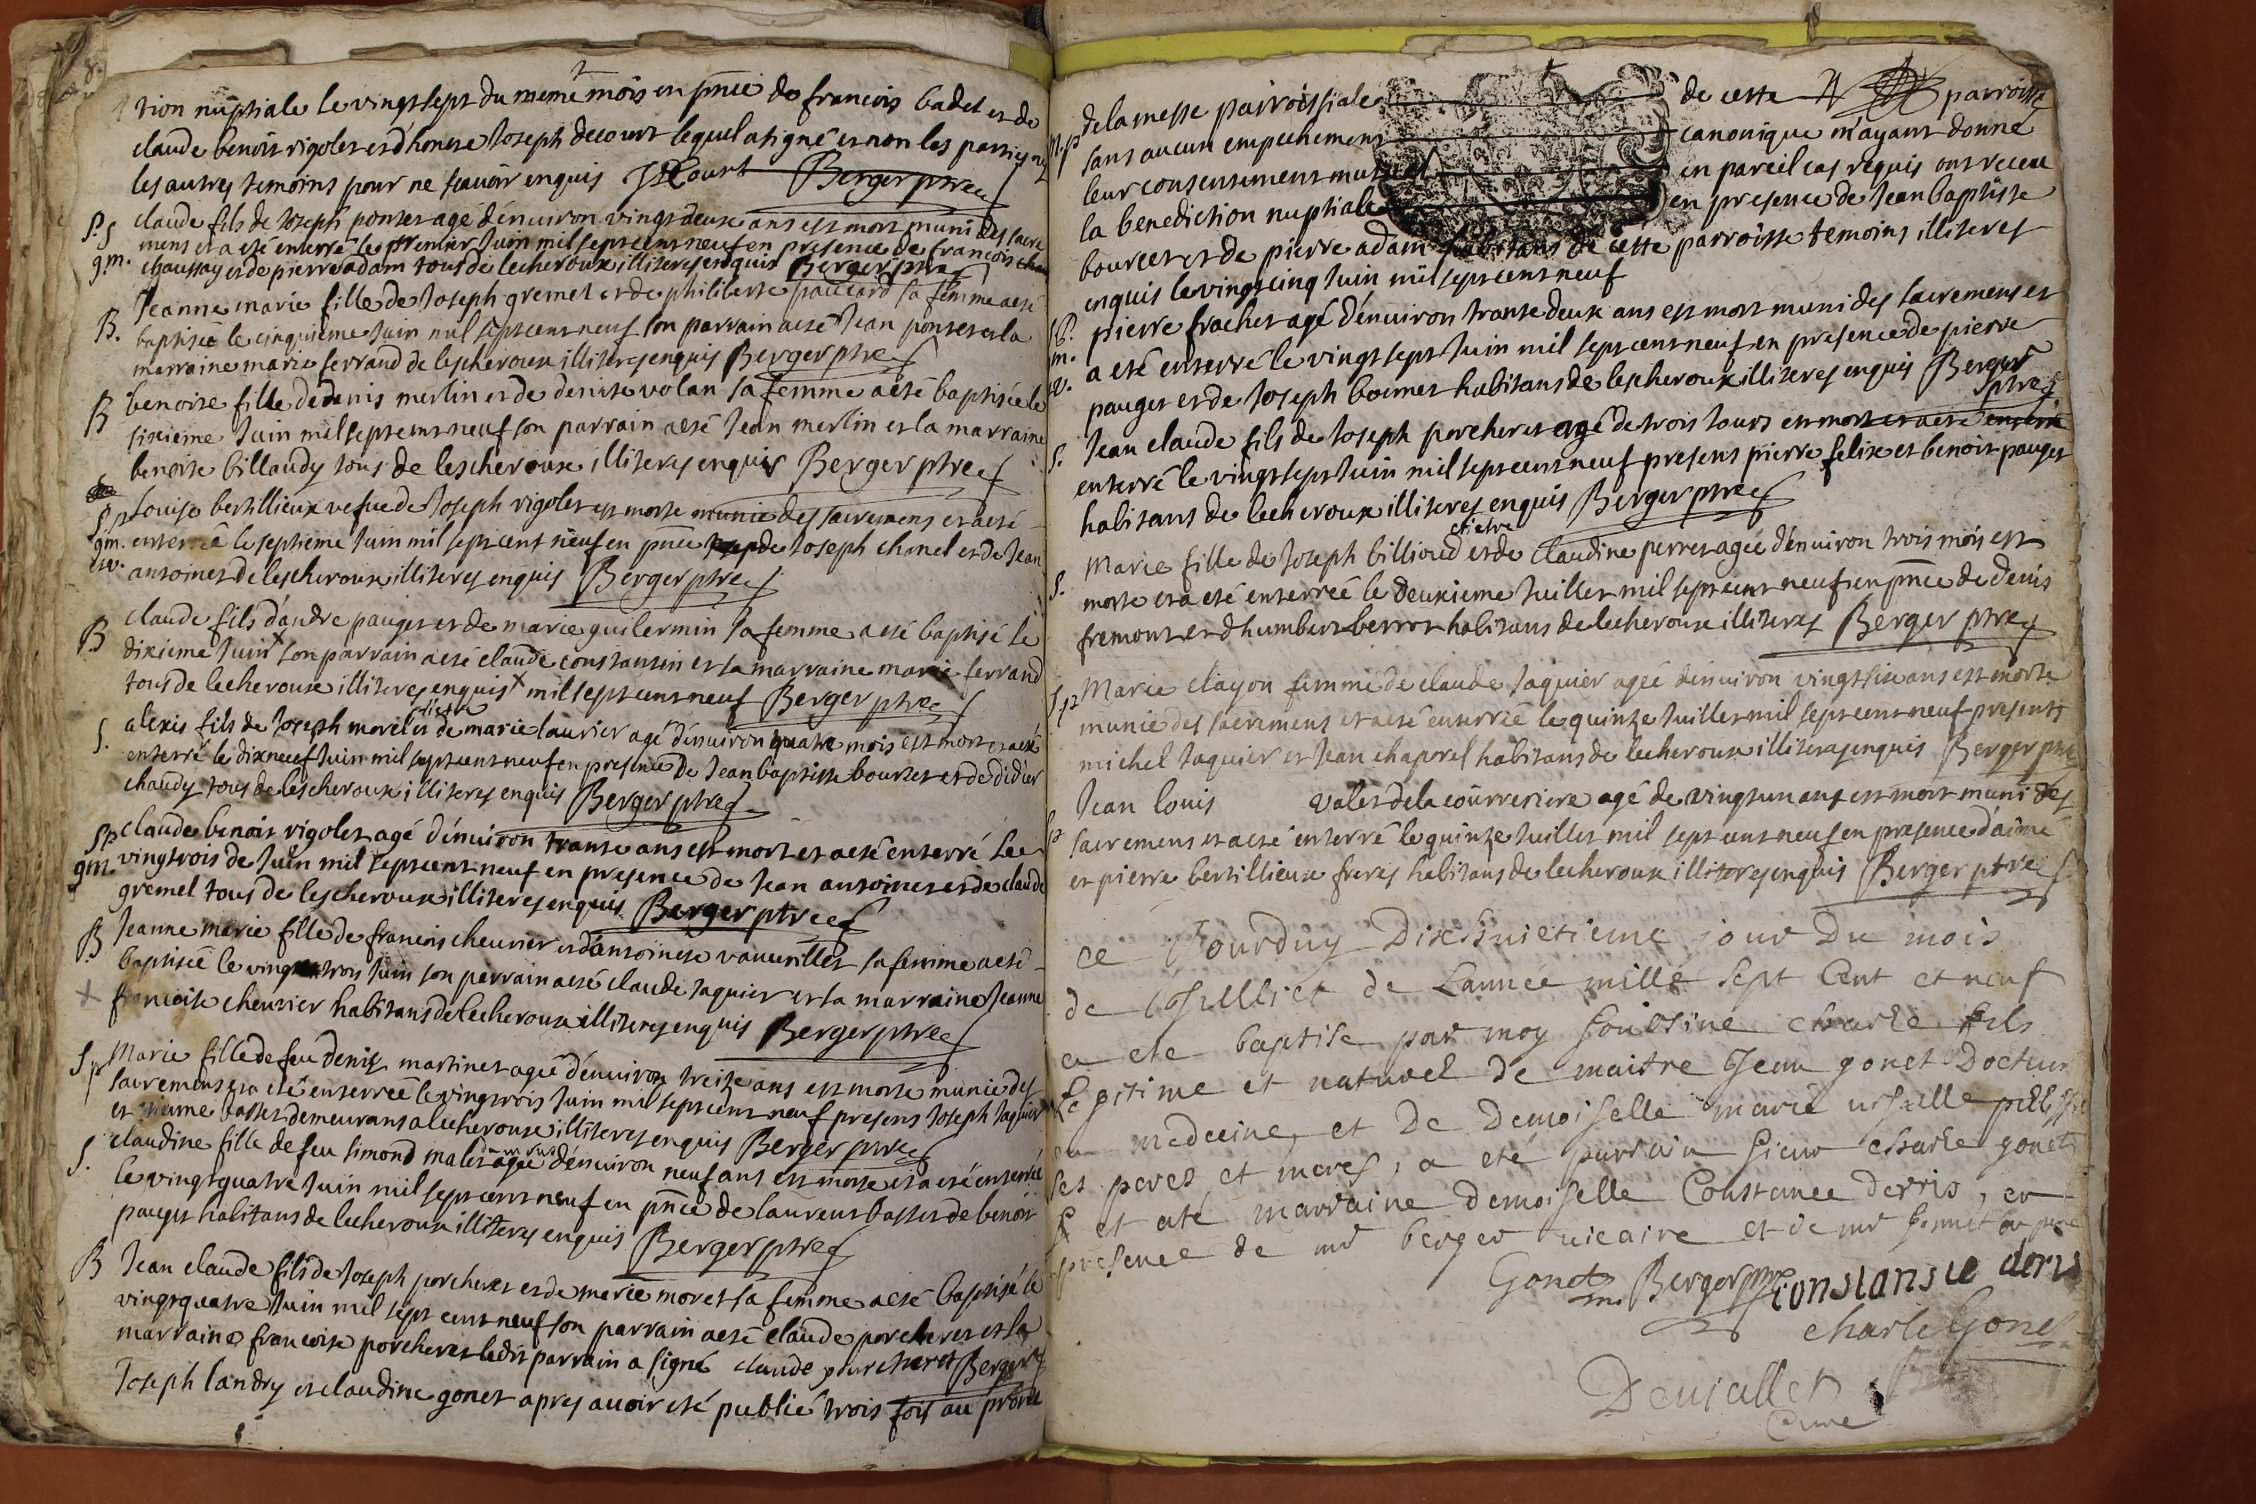 tion nuptiale le vingt sept du meme mois en pnce de francois badet et de
claude benoit rigolet et d'honete Joseph decourt lequel a signé et non les parties ny
les autres temoins pour ne scavoir enquis JDCourt Berger ptre
S.S claude fils de Joseph ponset agé d'enuiron vingt deux ans est mort muni des sacre
g.m. mens et a eté enterré le premier Juin mil sept cent neuf en presence de francois
chaussay et de pierre adam tous de lecheroux illiteres enquis Berger ptre
B. Jeanne marie fille de Joseph gremel et de philiberte paccard sa femme a eté
baptisée le cinquieme Juin mil sept cent neuf son parrain a eté Jean ponset et la
marraine marie ferrand de lescheroux illiteres enquis Berger ptre
B benoite fille de denis merlin et de denise volan sa femme a eté baptisée le
sixieme Juin mil sept cent neuf son parrain a eté Jean merlin et la marraine
benoite billaudy tous de lescheroux illiteres enquis Berger ptre
S.p Louise bertillieux vefue de Joseph rigolet est morte munie des sacremens et a eté
g.m. enterrée le septieme Juin mil sept cent neuf en pnce de Joseph chanel et de Jean
antoinet de lescheroux illiteres enquis Berger ptre
B claude fils d'andre pauget et de marie guilermin sa femme a eté baptisé le
dixieme Juin x son parrain a eté claude constantin et sa marraine marie ferrand
tous de lecheroux illiteres enquis x mil sept cent neuf Berger ptre
S. alexis fils de Joseph morel et de marie laurier agé d'enuiron quatre mois est mort et a eté
enterré le dixneuf Juin mil sept cent neuf en presence de Jean baptiste bourcet et de didier
chaudy tous de lescheroux illiteres enquis Berger ptre
S.p claude benoit rigolet agé d'enuiron trante ans est mort et a eté enterré le
g.m. vingt trois de Juin mil sept cent neuf en presence de Jean antoinet et de claude
gremel tous de lescheroux illiteres enquis Berger ptre
B Jeanne marie fille de francois cheurier et d'antoinete vaucurillet sa femme a eté
baptisée le vingt trois Juin son parrain a eté claude Jaquier et sa marraine Jeanne
x francoise cheurier habitans de lecheroux illiteres enquis Berger ptre
S p Marie fille de feu denis martinet agée d'enuiron treize ans est morte munie des
sacremens et a eté enterrée le vingt trois Juin mil sept cent neuf presens Joseph Jaquier
et basset demeurans a lecheroux illiteres enquis Berger ptre
S. claudine fille de feu simond malet agée d'enuiron neuf ans est morte et a eté enterrée
le vingt quatre Juin mil sept cent neuf en pnce de laurent basset de benoit
pauget habitans de lecheroux illiteres enquis Berger ptre
B Jean claude fils de Joseph porcheret et de marie moret sa femme a eté baptisé le
vingt quatre Juin mil sept cent neuf son parrain a eté claude porcheret et la
marraine francoise porcheret ledit parrain a signé claude pourcheret Berger
Joseph landry et claudine gonet apres auoir eté publié trois fois au prone
de la messe parroissiale de cette parroisse
m.p sans aucun empechement canonique m'ayant donné
leur consentement mutuel en pareil cas requis ont receu
la benediction nuptiale en presence de Jean baptiste
bourcet et de pierre adam habitans de cette parroisse temoins illiteres
enquis le vingt cinq Juin mil sept cent neuf
S.p. pierre frachet agé d'enuiron trante deux ans est mort muni des sacremens et
m. a eté enterré le vingt sept Juin mil sept cent neuf en presence de pierre
pauget et de Joseph boernet habitans de lescheroux illiteres enquis Berger
ptre
S. Jean claude fils de Joseph porcheret agé de trois jours est mort et a eté enterré
enterré le vingt sept Juin mil sept cent neuf presens pierre felix et benoit pauget
habitans de lecheroux illiteres enquis Berger ptre
Marie fille de Joseph billioud et de claudine perret agée d'enuiron trois mois est
S. morte et a eté enterrée le deuxieme Juillet mil sept cent neuf en pnce de denis
fremont et d'humbert berrot habitans de lecheroux illiteres Berger ptre
S p Marie clayon femme de claude Jaquier agée d'enuiron vingt six ans est morte
munie des sacremens et a eté enterrée le quinze Juillet mil sept cent neuf presents
michel Jaquier et Jean chaporel habitans de lecheroux illiteres enquis Berger ptre
Jean louis valet de la courresiere agé de vingt un ans est mort muni des
Sp sacremens et a eté enterré le quinze Juillet mil sept cent neuf en presence d'aimé
et pierre bertillieux freres habitans de lecheroux illiteres enquis Berger ptre
ce Jourduy Dixhuictieme jour Du mois
de Juilliet de Lannée mille sept Cent et neuf
a ete baptise par moy soubsine charle fils
Legitime et naturel de maitre Jean gonet Docteur
en medecine, et De Demoiselle marie
ses peres et meres, a eté parrain sieur charle gonet
et a ete marraine demoiselle Constance derris, en
presence de mr berger vicaire et de mr
Gonet Berger ptre constansse deris
charle Gonet
Deujallet
Cure